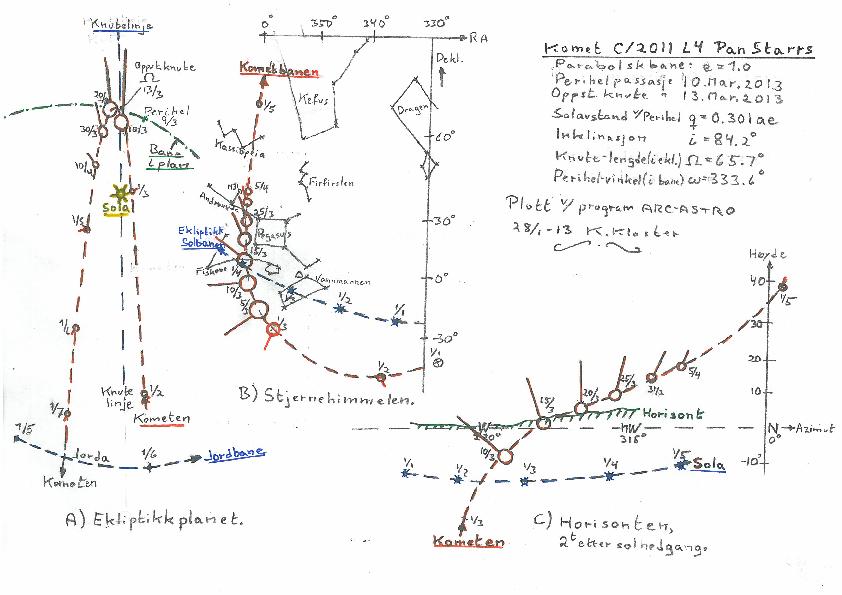 Komet C/2011 L4 PanStarrs
Parabolsk bane: e = 1.0
Perihelpassasje 10.Mar.2013
Oppst.knute " 13.Mar.2013
Solavstand v/Perihel q = 0.301ae
Inklinasjon i = 84.2°
Knute-lengde(ekl.) Ω = 65.7°
Perihel-vinkel(i bane) ω = 333.6°
Plott v/program ARC-ASTRO
28/1-13 K.Kloster
Knutelinje
Oppst.knute
Ω
13/3
20/3
Perihel
9/3
30/3
10/3
Bane
i plan
10/4
1/3
Sola
1/5
1/6
1/7
Knute
linje
1/2
Kometen
1/5
Jorda
1/6
Jordbane
Kometen
A) Ekliptikkplanet.
0° 350° 340° 330°
RA
Dekl.
Kometbanen
1/5
Kefus
Dragen
60°
Kassiopeia
Firfirslen
5/4
M31
Andromeda
25/3
30°
Pegasus
Ekliptikk
Solbanen
15/3
Fiskene
1/4
0°
Vannmannen
10/3
1/2
1/1
5/3
1/3
-30°
1/1
1/2
B) Stjernehimmelen.
Høyde
40
1/5
30
20
10
-10°
18/3
20/3
25/3
31/2
5/4
Horisont
W
270°
NW
315°
N
0°
Azimut
10/3
1/1
1/2
1/3
1/4
1/5
Sola
1/3
Kometen
C) Horisonten,
2t etter solnedgang.